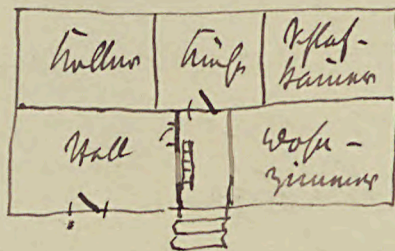 Keller
Küche
Schlaf-
kammer
Stall
Wohn-
zimmer